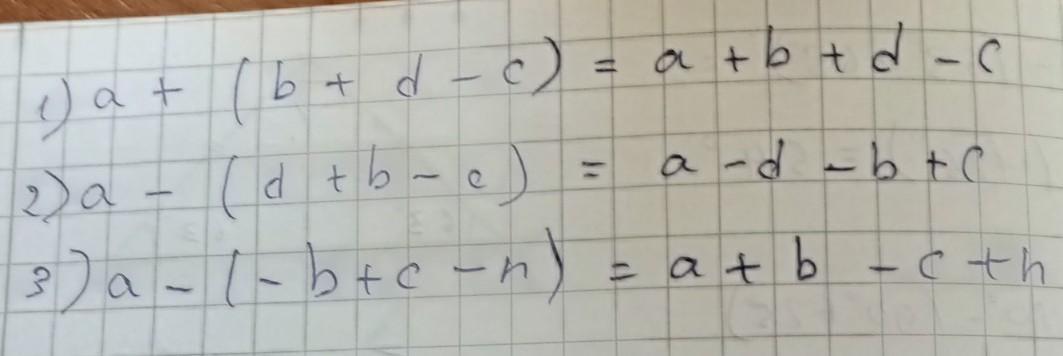 1) a + (b + d - c) = a + b + d - c
2) a - (d + b - c) = a - d - b + c
3) a - (-b + c - n) = a + b - c + n